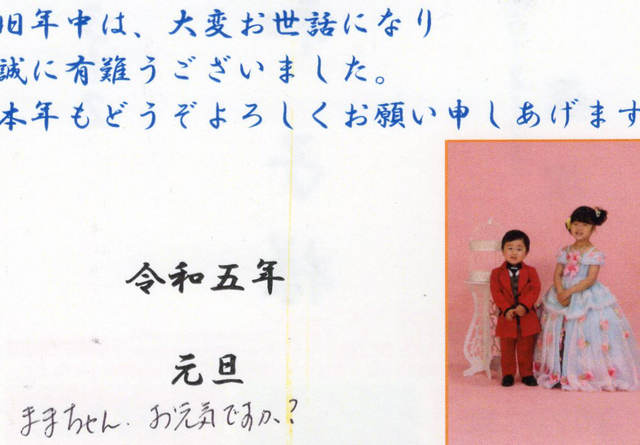 旧年中は、大変お世話になり
誠に有難うございました。
本年もどうぞよろしくお願い申しあげます
令和五年
元旦
ままちゃん.お元気ですか?